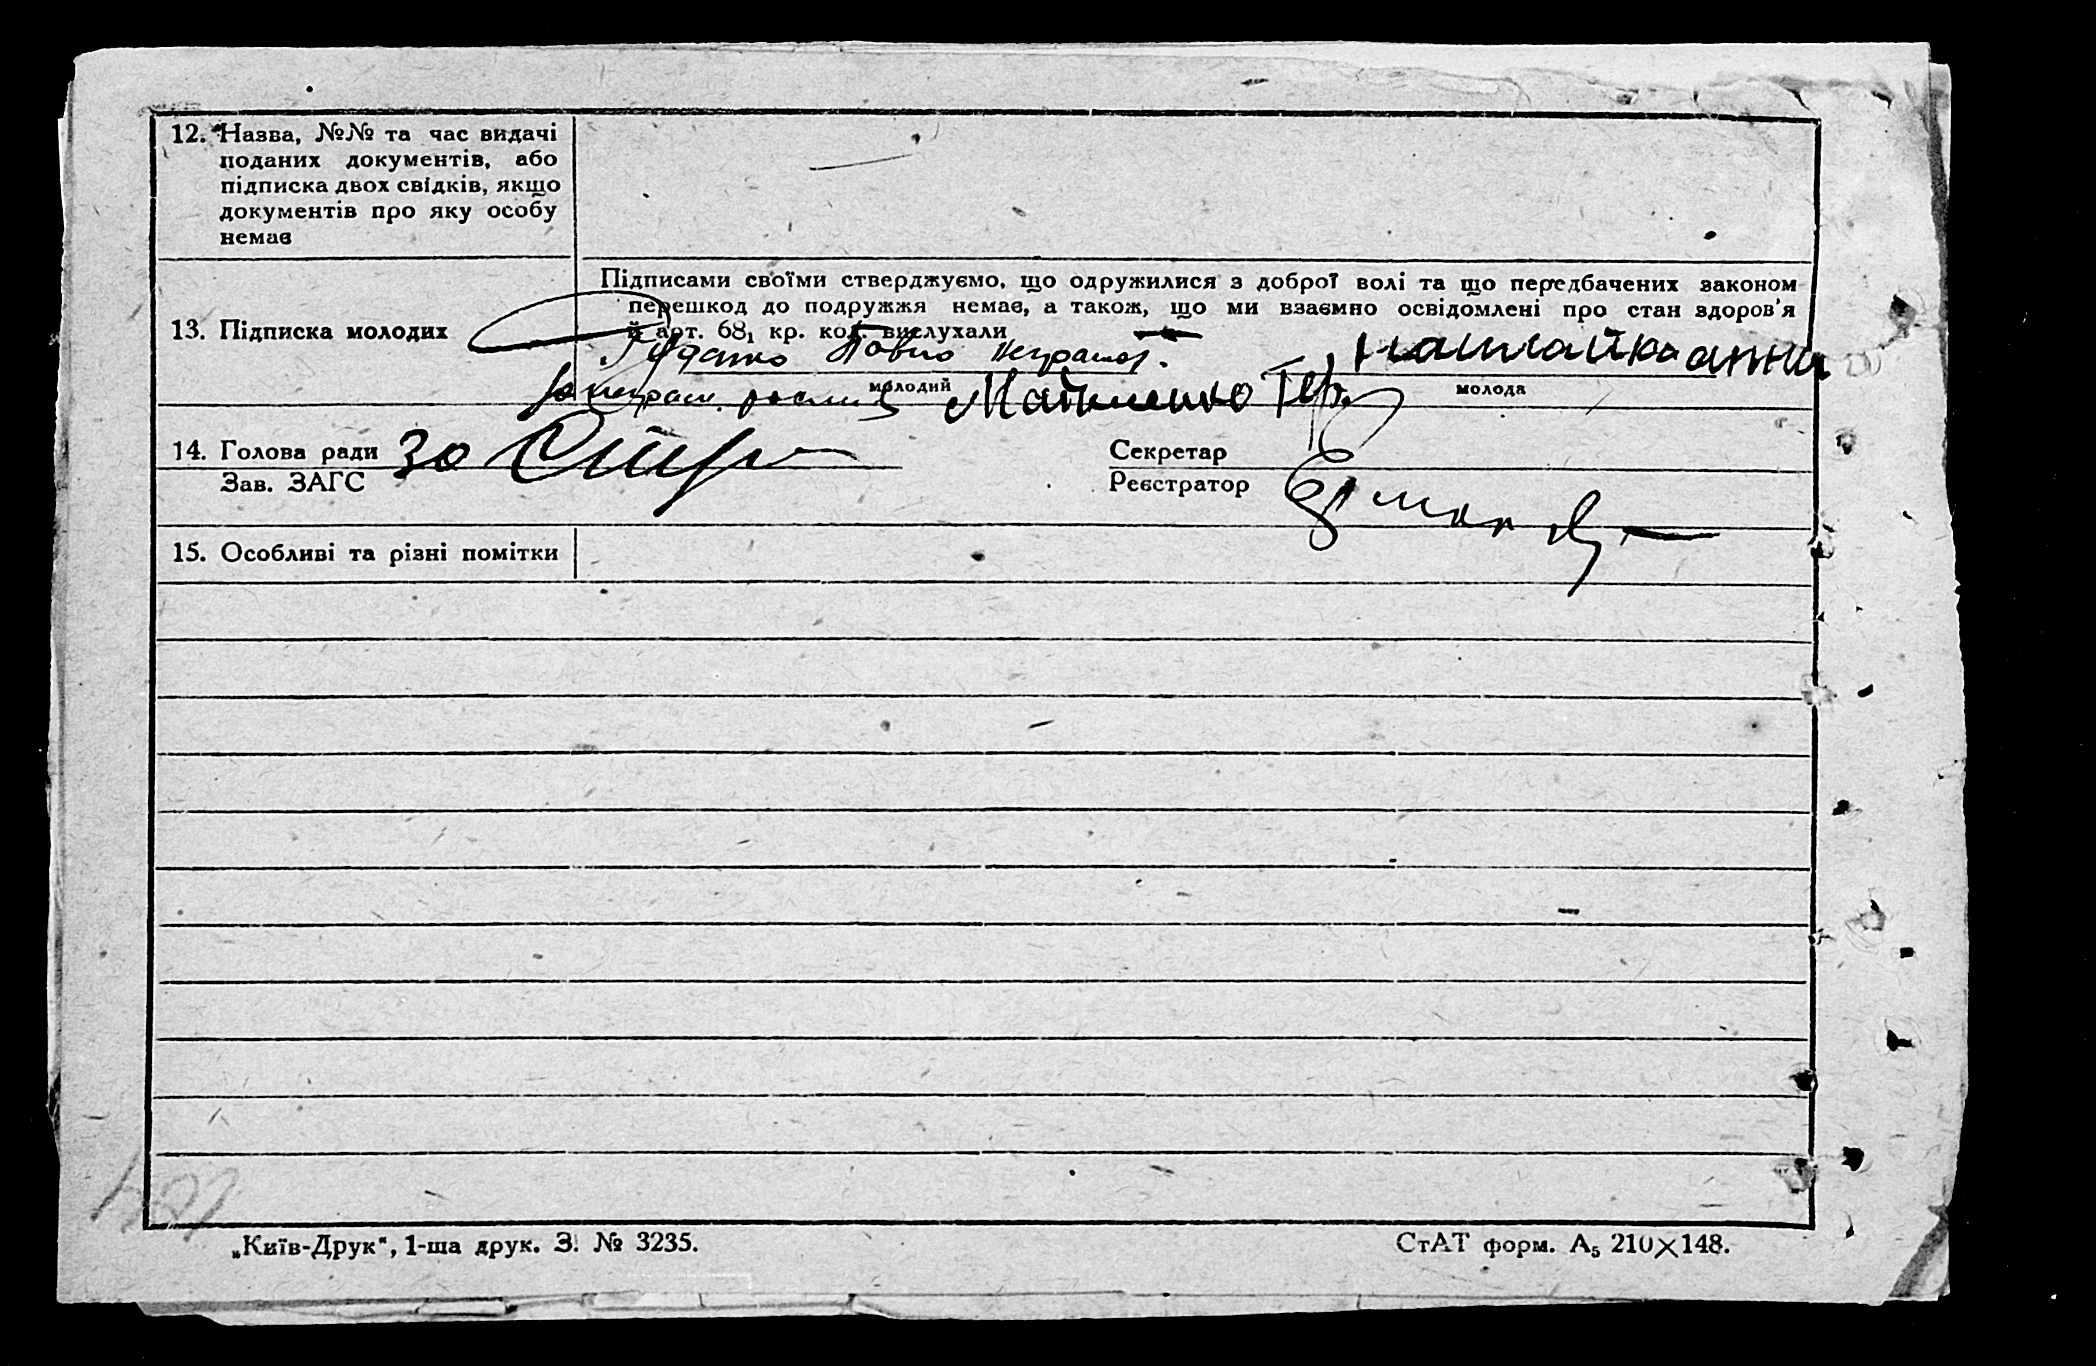 12. Назва, №№ та час видачі
поданих документів, або
підписка двох свідків, якщо
документів про яку особу
немає
Підписами своїми стверджуємо, що одружилися з доброї волі та що передбачених законом
перешкод до подружжя немає, а також, що ми взаємно освідомлені про стан здоров'я
13. Підписка молодих
й арт. 68₁ кр. код. вислухали
Павло неграмот.
молодий
Матюшенко
молода
14. Голова ради За
Секретар
Зав. ЗАГС
Реєстратор
15. Особливі та різні помітки
„Київ-Друк", 1-ша друк. З. № 3235.
СтАТ форм. А₅ 210×148.